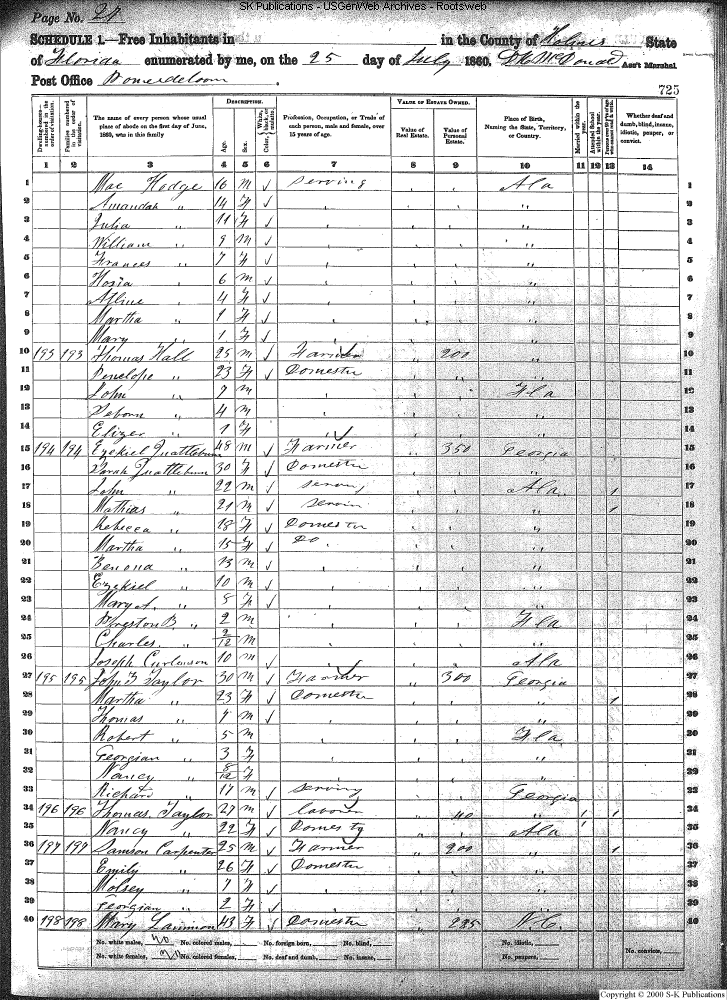 SK Publications - USGenWeb Archives - Rootsweb
Page No. 27
SCHEDULE 1.—Free Inhabitants in in the County of Holmes State
of Florida enumerated by me, on the 25 day of July 1860. McDonald Ass't Marshal
Post Office
725
Dwelling-houses—numbered in the order of visitation.
Families numbered in the order of visitation.
The name of every person whose usual place of abode on the first day of June, 1860, was in this family
DESCRIPTION.
Age.
Sex.
Color, White, black, or mulatto.
Profession, Occupation, or Trade of each person, male and female, over 15 years of age.
VALUE OF ESTATE OWNED.
Value of Real Estate.
Value of Personal Estate.
Place of Birth, Naming the State, Territory, or Country.
Married within the year.
Attended School within the year.
Whether deaf and dumb, blind, insane, idiotic, pauper, or convict.
1 2 3 4 5 6 7 8 9 10 11 12 13 14
1 Mac Hodge 16 m ✓ Serving Ala 1
2 Amandah " 14 F ✓ " 2
3 Julia " 11 F ✓ " 3
4 William " 9 m ✓ " 4
5 Frances " 7 F ✓ " 5
6 Hosia " 6 m ✓ " 6
7 " 4 F ✓ " 7
8 Martha " 1 F ✓ " 8
9 Mary " 1 F ✓ " 9
10 193 193 Thomas Hall 25 m ✓ Farmer 200 " 10
11 Penelope " 23 F ✓ Domestic " 11
12 John " 7 m Fla 12
13 " 4 m " 13
14 Elizer " 1 F " 14
15 194 194 Ezekiel Quattlebum 48 m ✓ Farmer 350 Georgia 15
16 Sarah Quattlebum 30 F ✓ Domestic " 16
17 John " 22 m ✓ Serving Ala 17
18 Mathias " 21 m ✓ Servin " 18
19 Rebecca " 18 F ✓ Domestic " 19
20 Martha " 15 F ✓ Do " 20
21 Benona " 13 m ✓ " 21
22 Ezekiel " 10 m ✓ " 22
23 Mary A. " 8 F ✓ " 23
24 Preston B. " 2 m Fla 24
25 Charles " 2/12 m " 25
26 Joseph 10 m ✓ Ala 26
27 195 195 John T Taylor 30 m ✓ Farmer 300 Georgia 27
28 Martha " 23 F ✓ Domestic " 28
29 Thomas " 7 m ✓ " 29
30 Robert " 5 m Fla 30
31 Georgian " 3 F " 31
32 Nancy " 8/12 F " 32
33 Richard " 17 m ✓ Serving Georgia 33
34 196 196 Thomas Taylor 27 m ✓ laborer 40 " 34
35 Nancy " 22 F ✓ Domesty Ala 35
36 197 197 Samson Carpenter 25 m ✓ Farmer 200 " 36
37 Emily " 26 F ✓ Domestic " 37
38 Molsey " 7 F ✓ " 38
39 Georgian " 2 F ✓ " 39
40 198 198 Mary 43 F ✓ Domestic 225 N.C. 40
No. white males, No. colored males, No. foreign born, No. blind, No. idiotic, No. convicts,
No. white females, No. colored females, No. deaf and dumb, No. insane, No. paupers,
Copyright © 2000 S-K Publications